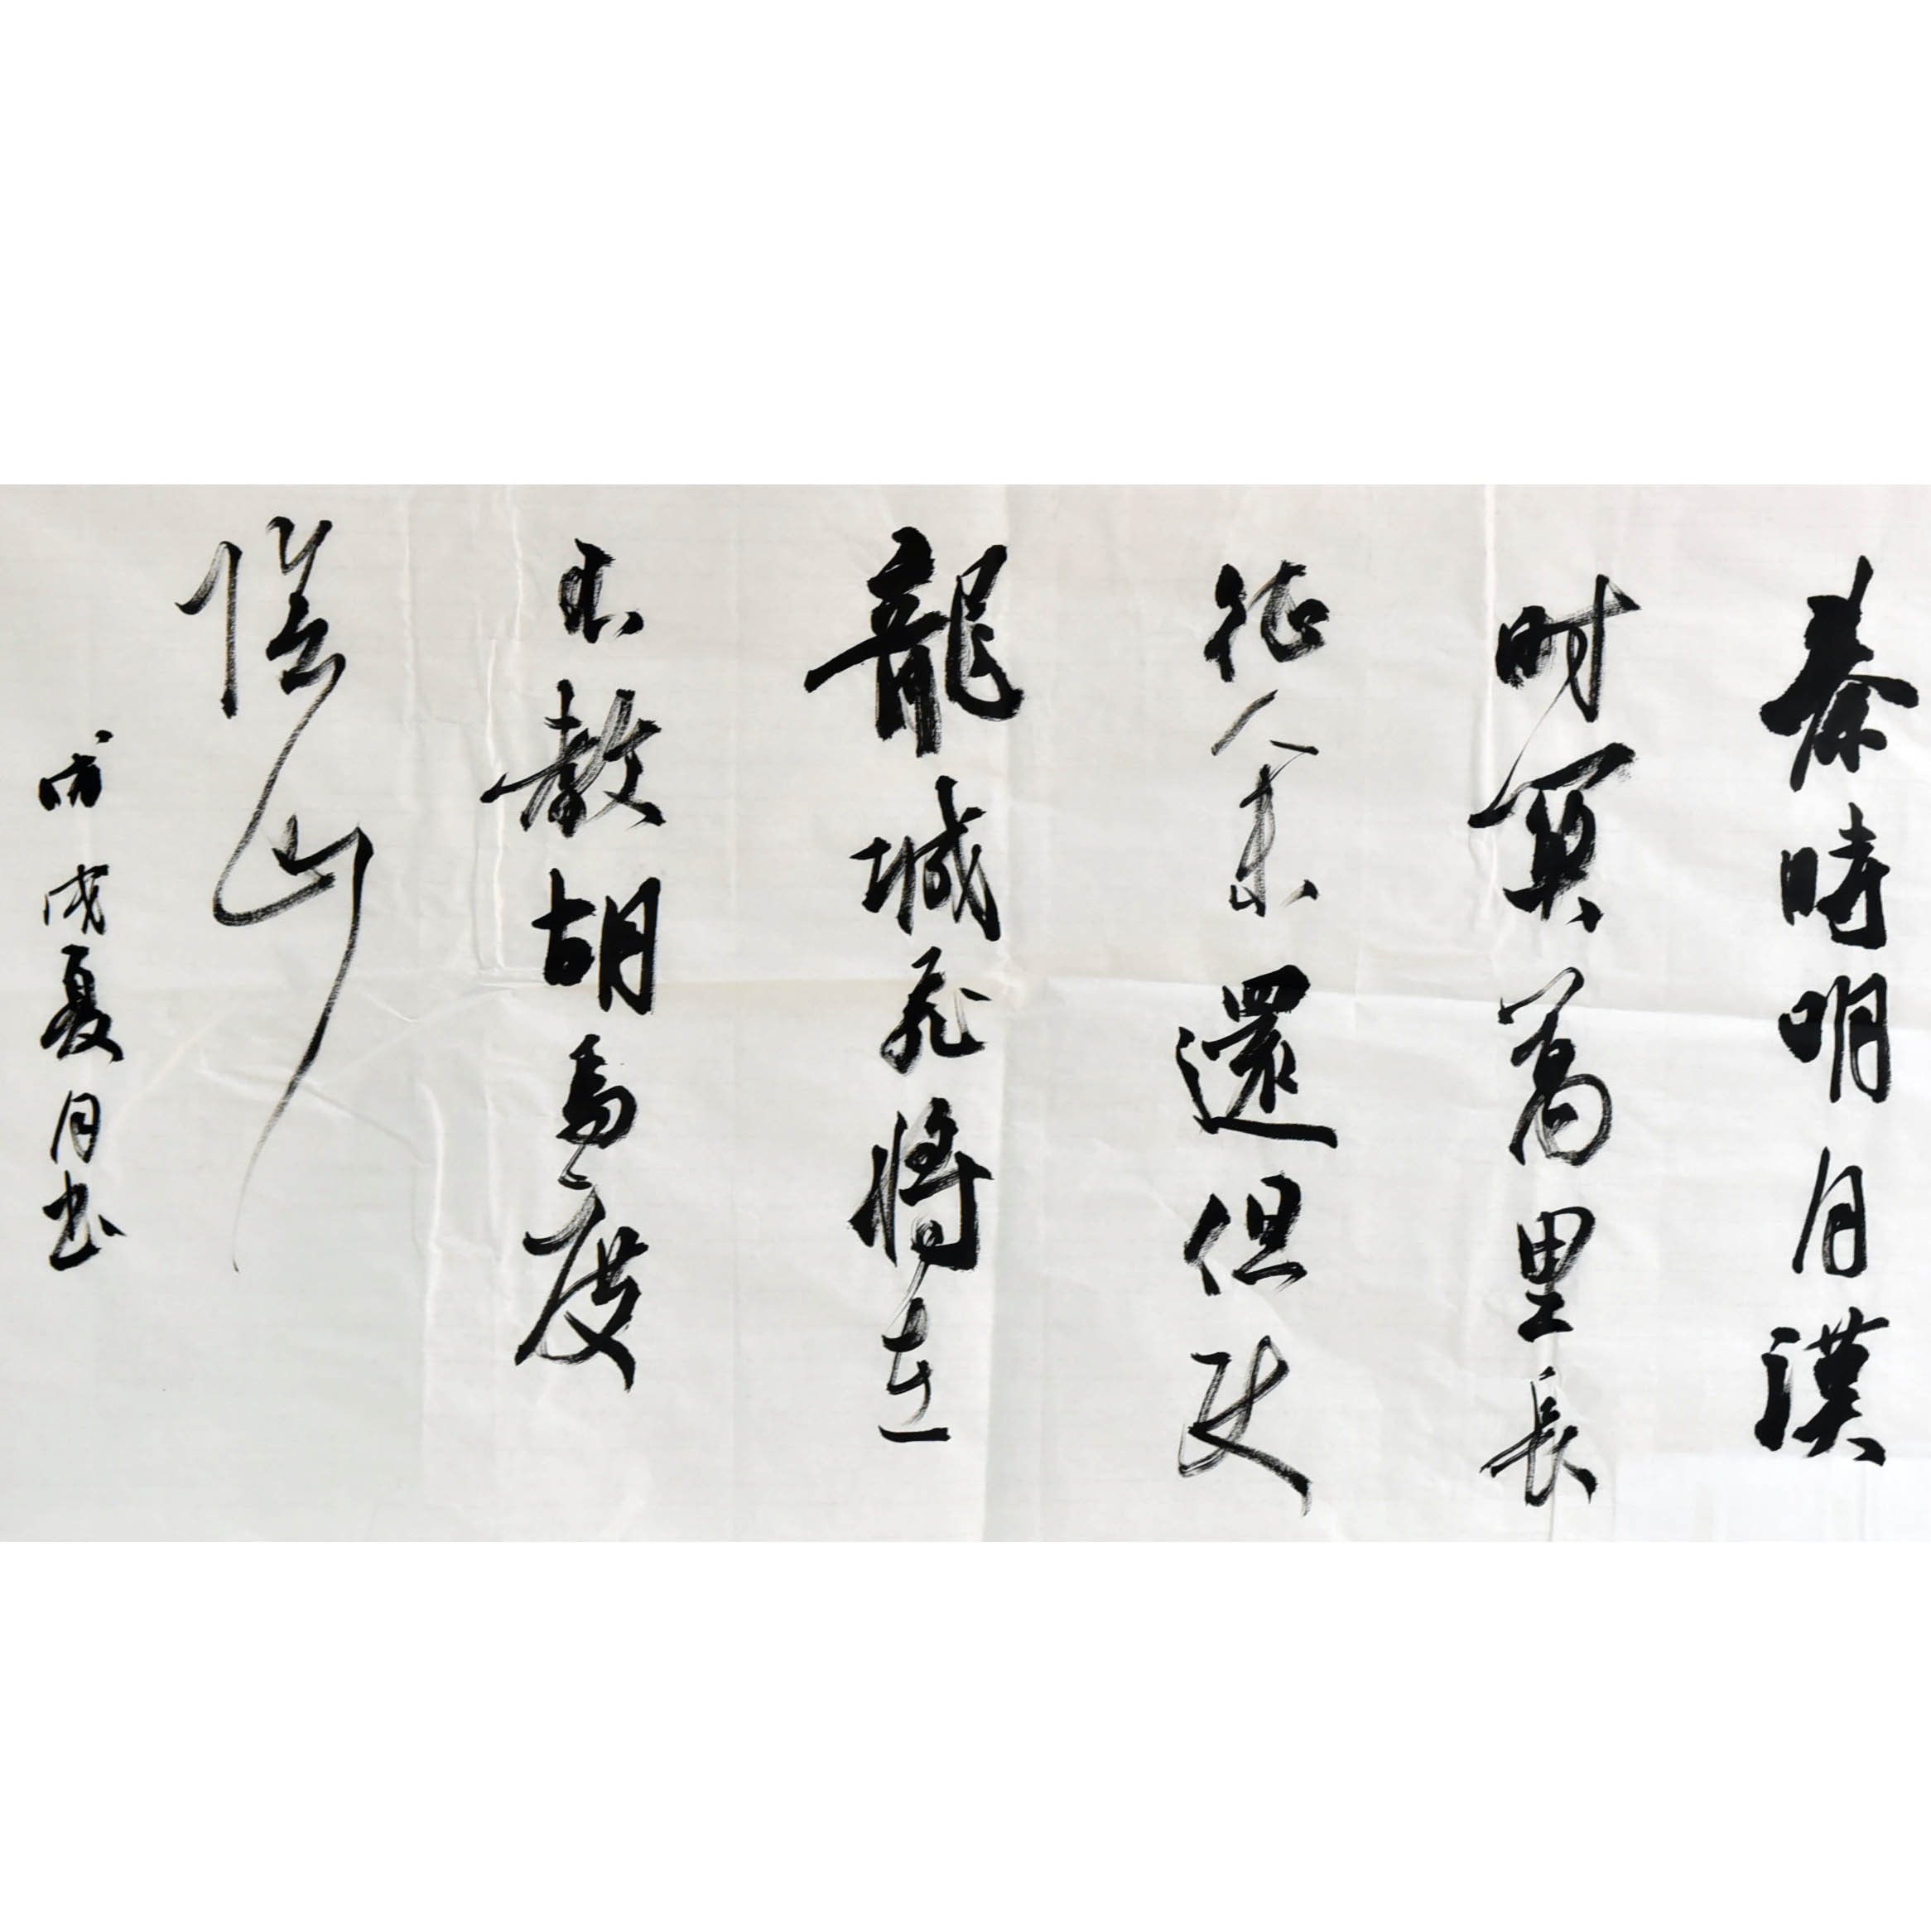 秦時明月漢
时關萬里長
征人未還但使
龍城飛將在
不教胡馬度
陰山
戊戌夏月書